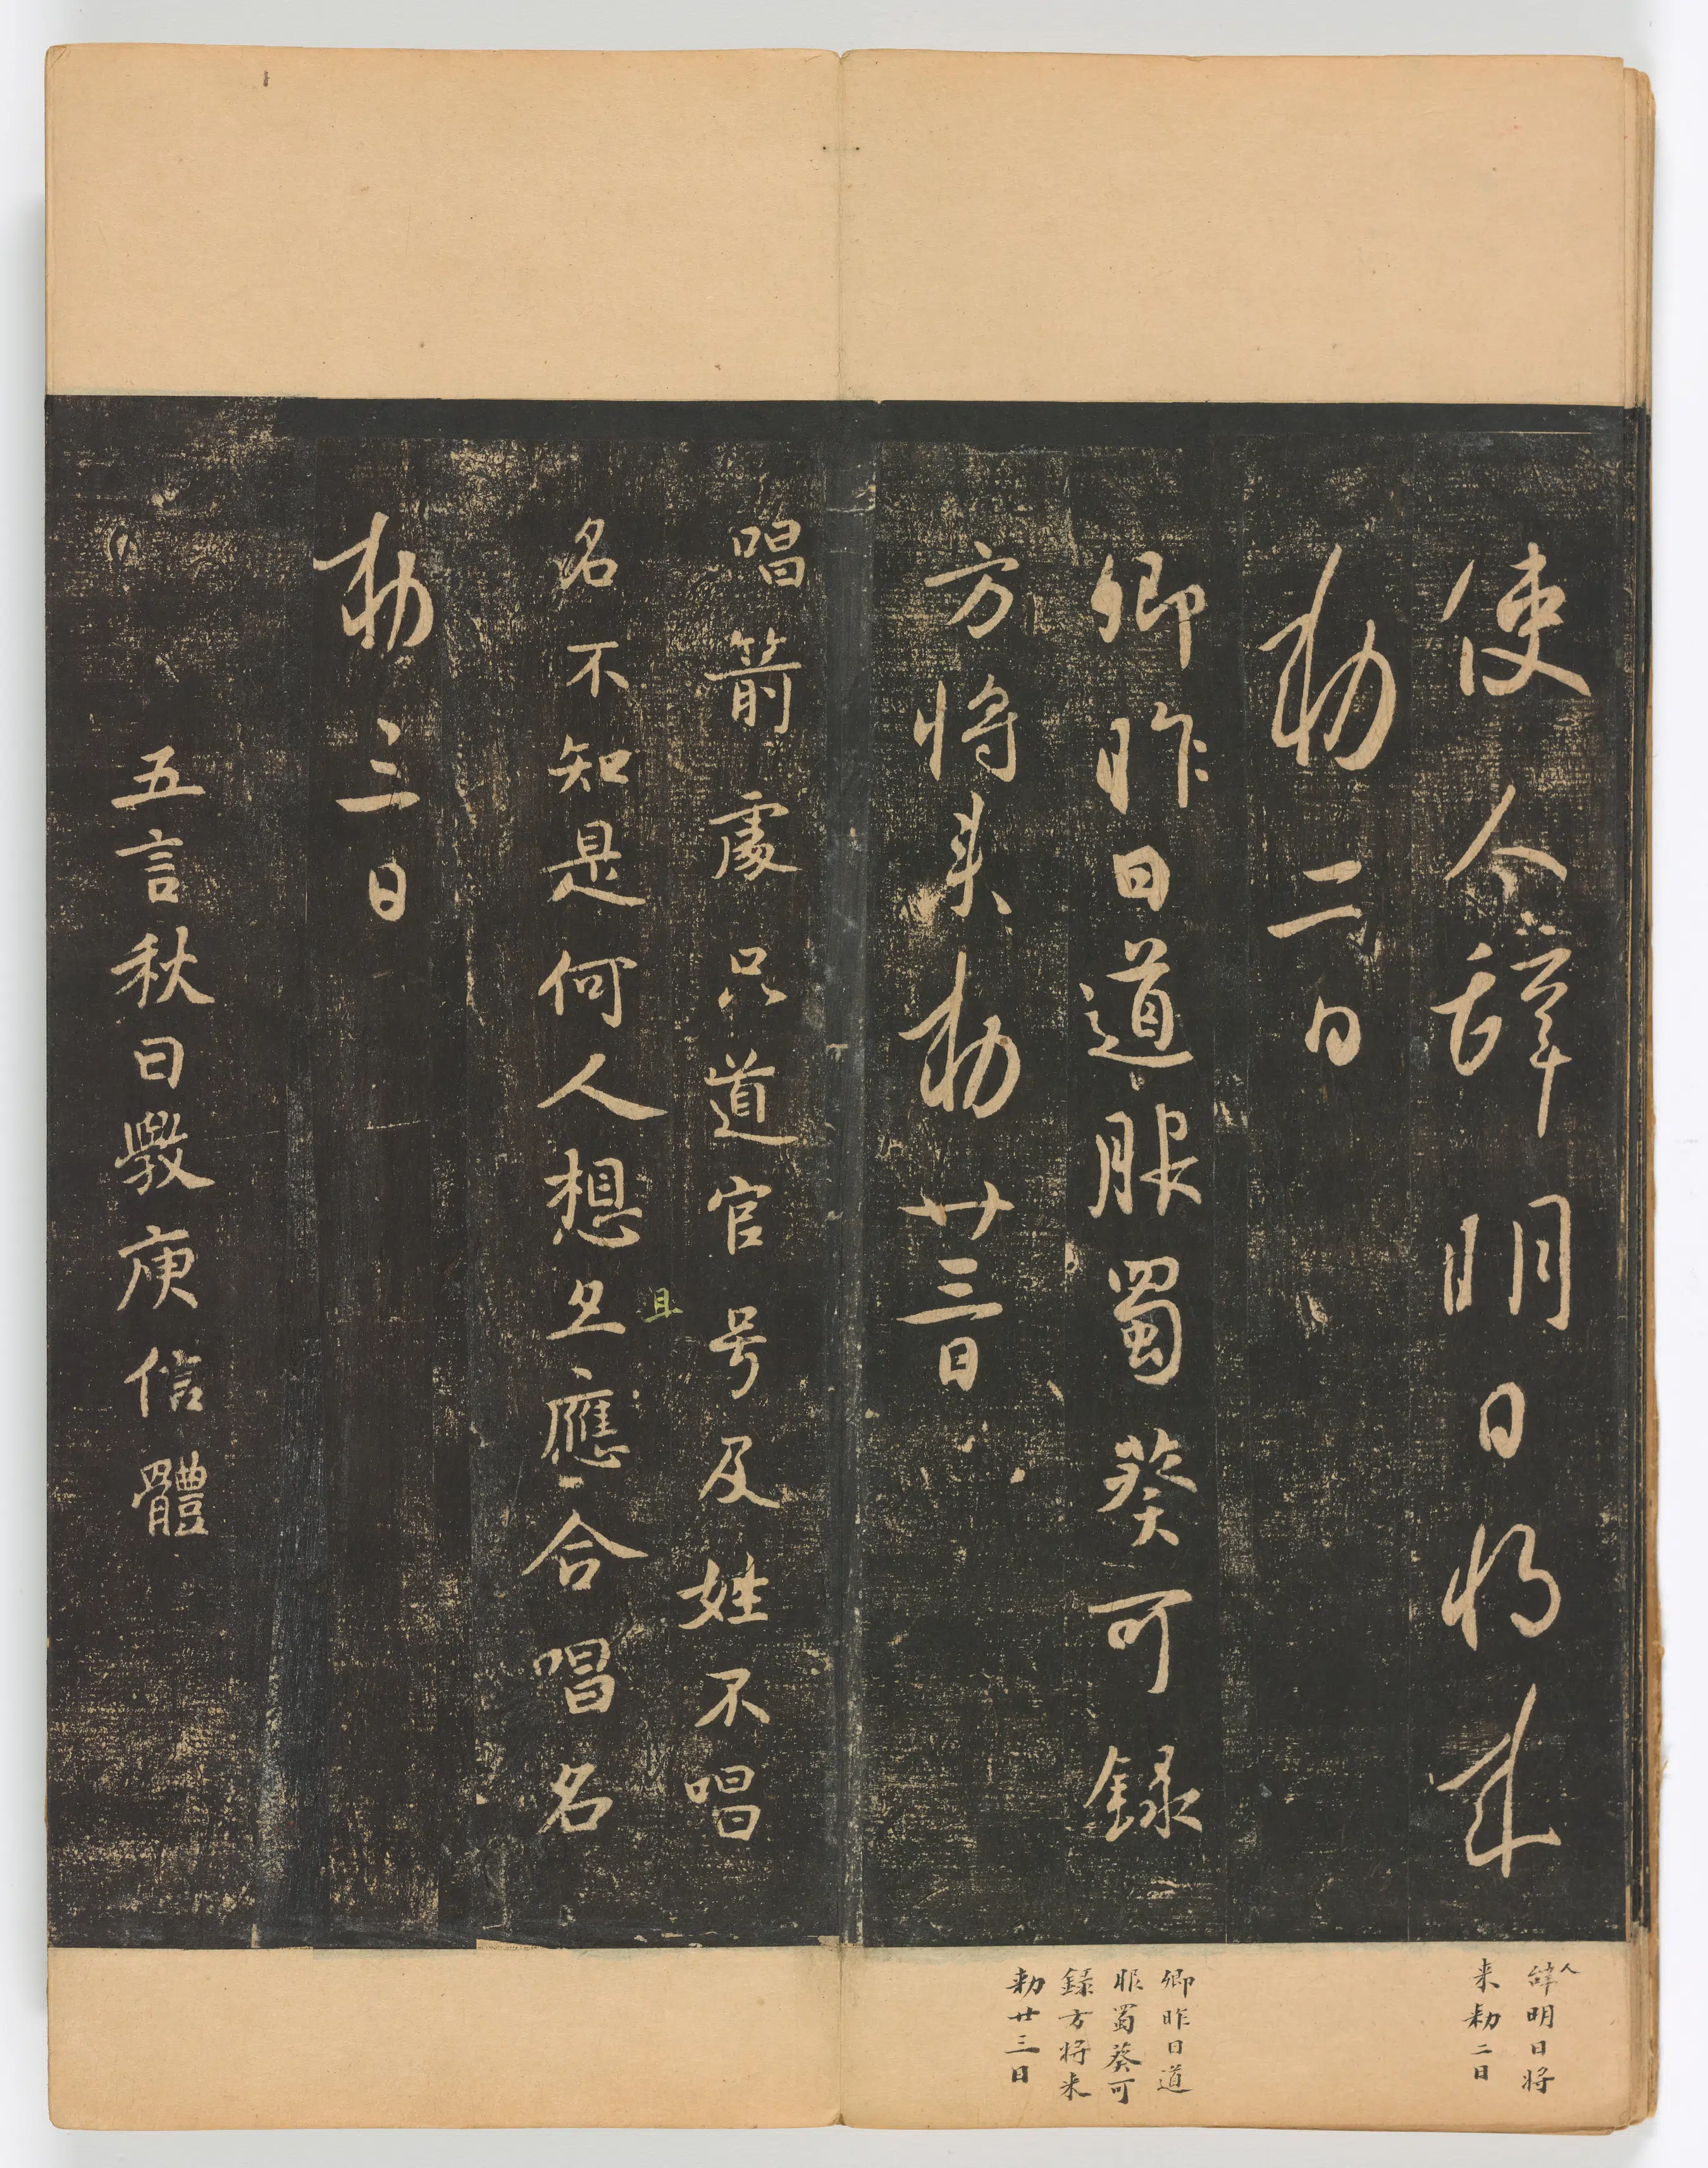 使人辞明日将来
勅二日
卿昨日道服蜀葵可録
方将来勅廿三日
唱箭處只道官号及姓不唱
名不知是何人想且應合唱名
且
勅三日
五言秋日斆庾信體
人
辞明日将
来勅二日
卿昨日道
服蜀葵可
録方将来
勅廿三日